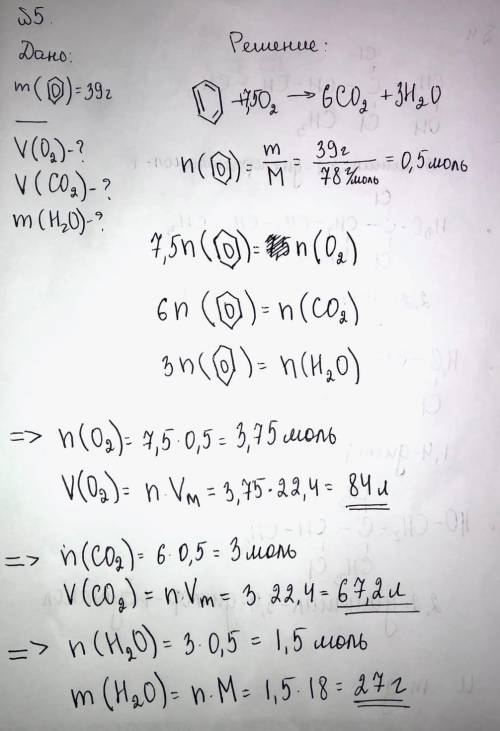 №5.
Дано:
Решение:
m(⌬)=39г
V(O₂)-?
V(CO₂)-?
m(H₂O)-?
⌬+7,5O₂ → 6CO₂ + 3H₂O
n(⌬) = m/M = 39г/78г/моль = 0,5моль
7,5n(⌬) = n(O₂)
6n(⌬) = n(CO₂)
3n(⌬) = n(H₂O)
=> n(O₂) = 7,5·0,5 = 3,75 моль
V(O₂) = n·Vм = 3,75·22,4 = 84 л
=> n(CO₂) = 6·0,5 = 3 моль
V(CO₂) = n·Vm = 3·22,4 = 67,2 л
=> n(H₂O) = 3·0,5 = 1,5 моль
m(H₂O) = n·M = 1,5·18 = 27 г